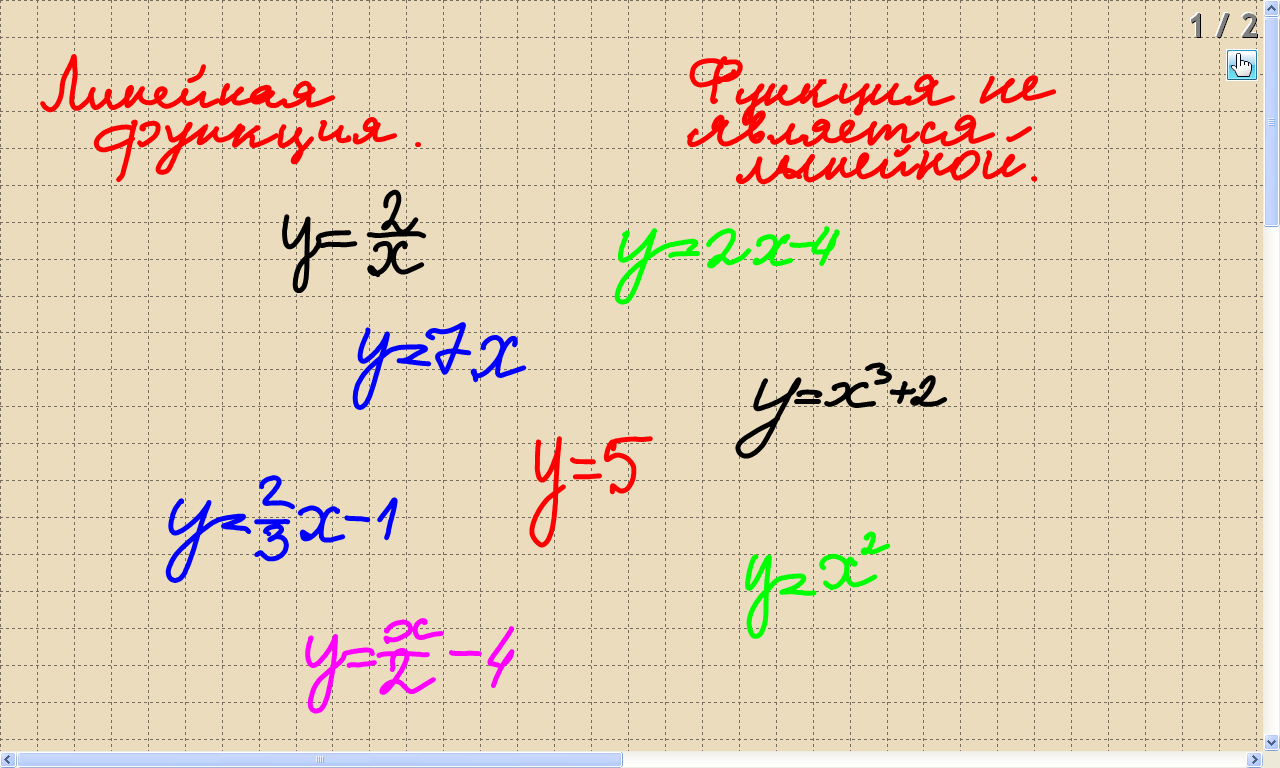 1 / 2
Линейная
функция.
Функция не
является
линейной.
y = 2/x
y = 2x - 4
y = 7x
y = x³ + 2
y = 5
y = 2/3 x - 1
y = x²
y = x/2 - 4